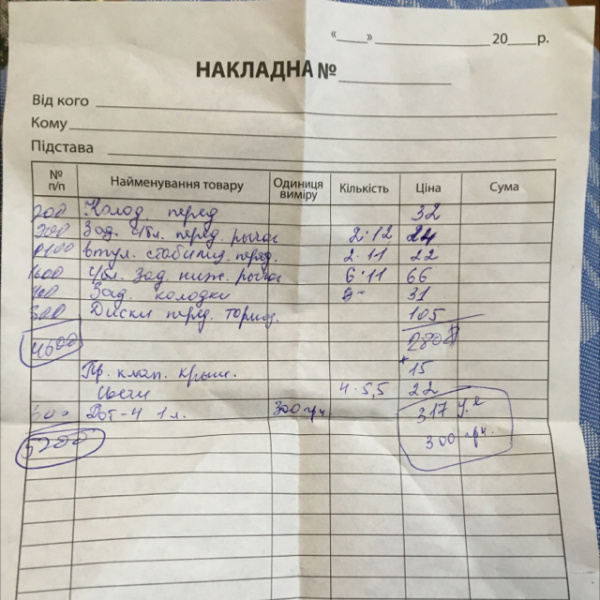 «___» ____________ 20___р.
НАКЛАДНА №
Від кого
Кому
Підстава
№ п/п Найменування товару Одиниця виміру Кількість Ціна Сума
200 Колод. перед 32
Зад. с/бл. перед. рычаг 2·12 24
втул. стабилиз. перед. 2·11 22
1600 с/бл. Зад. ниж. рычаг 6·11 66
400 Зад. колодки 31
500 Диски перед. тормоз. 105
4600 280
+ 15
Пр. клап. крыш.
Свечи 4·5,5 22
Dot-4 1л. 300 грн 317 у.е
5200 300 грн.